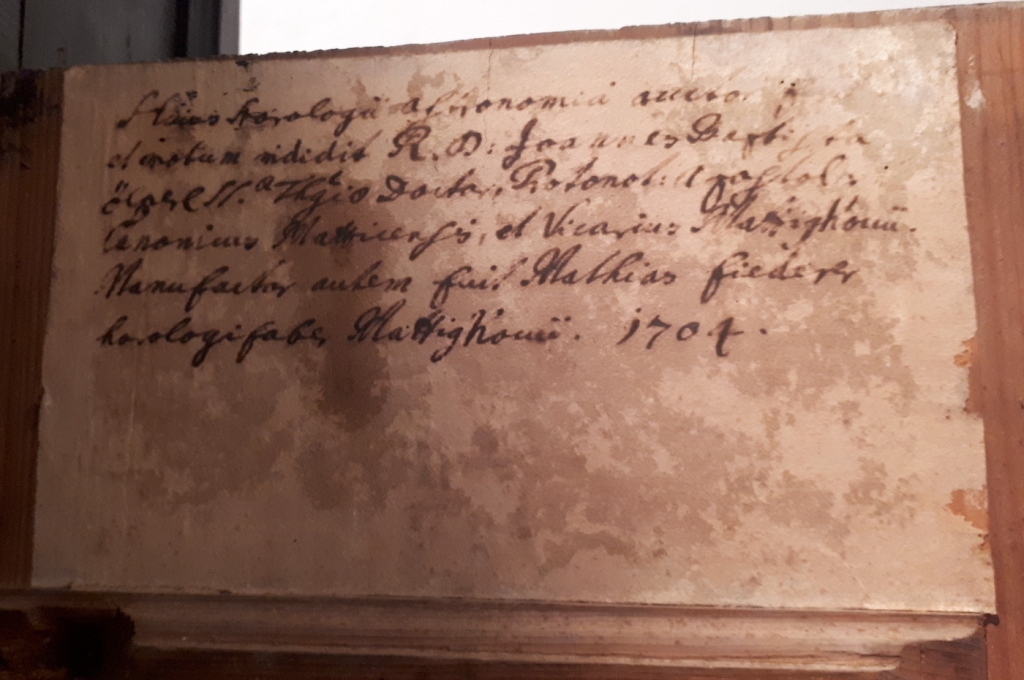 Huius horologii astronomici auctor
et motum indidit R. D: Joannes Baptista
SS.ae Thgiæ Doctor, Protonot: Apostol:
Canonicus Matticensis, et Vicarius Mattighovii.
Manufactor autem fuit Mathias fiederer
horologifaber Mattighovii. 1704.